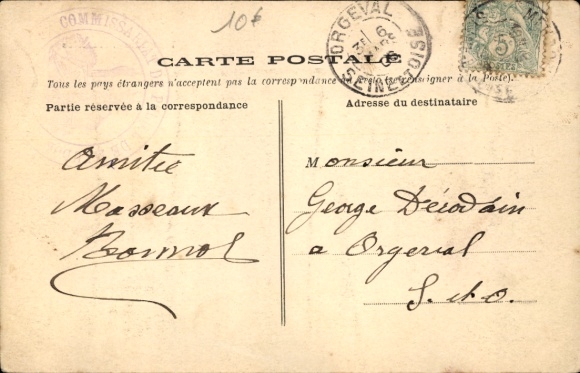 COMMISSA
10€
ORGEVAL
SEINE ET OISE
5
CARTE POSTALE
Tous les pays étrangers n'acceptent pas la correspondance (se renseigner à la Poste).
Partie réservée à la correspondance
Adresse du destinataire
Amitié
Masseaux
Monsieur
George Décodain
a Orgeval
S. et O.